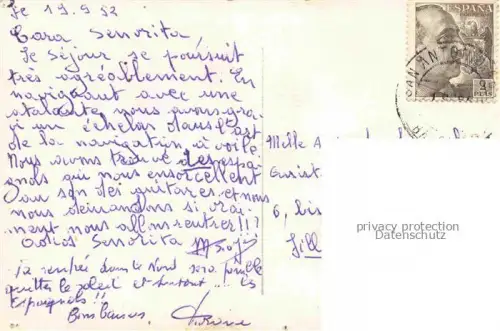 le 19.9.52
Cara Senorita,
Le séjour se poursuit
très agréablement. En
naviguant avec une
atalante, nous avons gra-
vi un échelon dans l'art
de la navigation à voile
Nous avons trouvé des espa-
gnols qui nous ensorcellent
au son des guitares et nous
nous demandons si vrai-
ment nous allons rentrer!!!
Adios Senorita
la rentrée dans le Nord sera pénible
quitter le soleil et surtout... les
Espagnols!!
Bons baisers,
ESPAÑA
SAN ANTONIO
PTAS
Melle
6,
Lill
privacy protection
Datenschutz